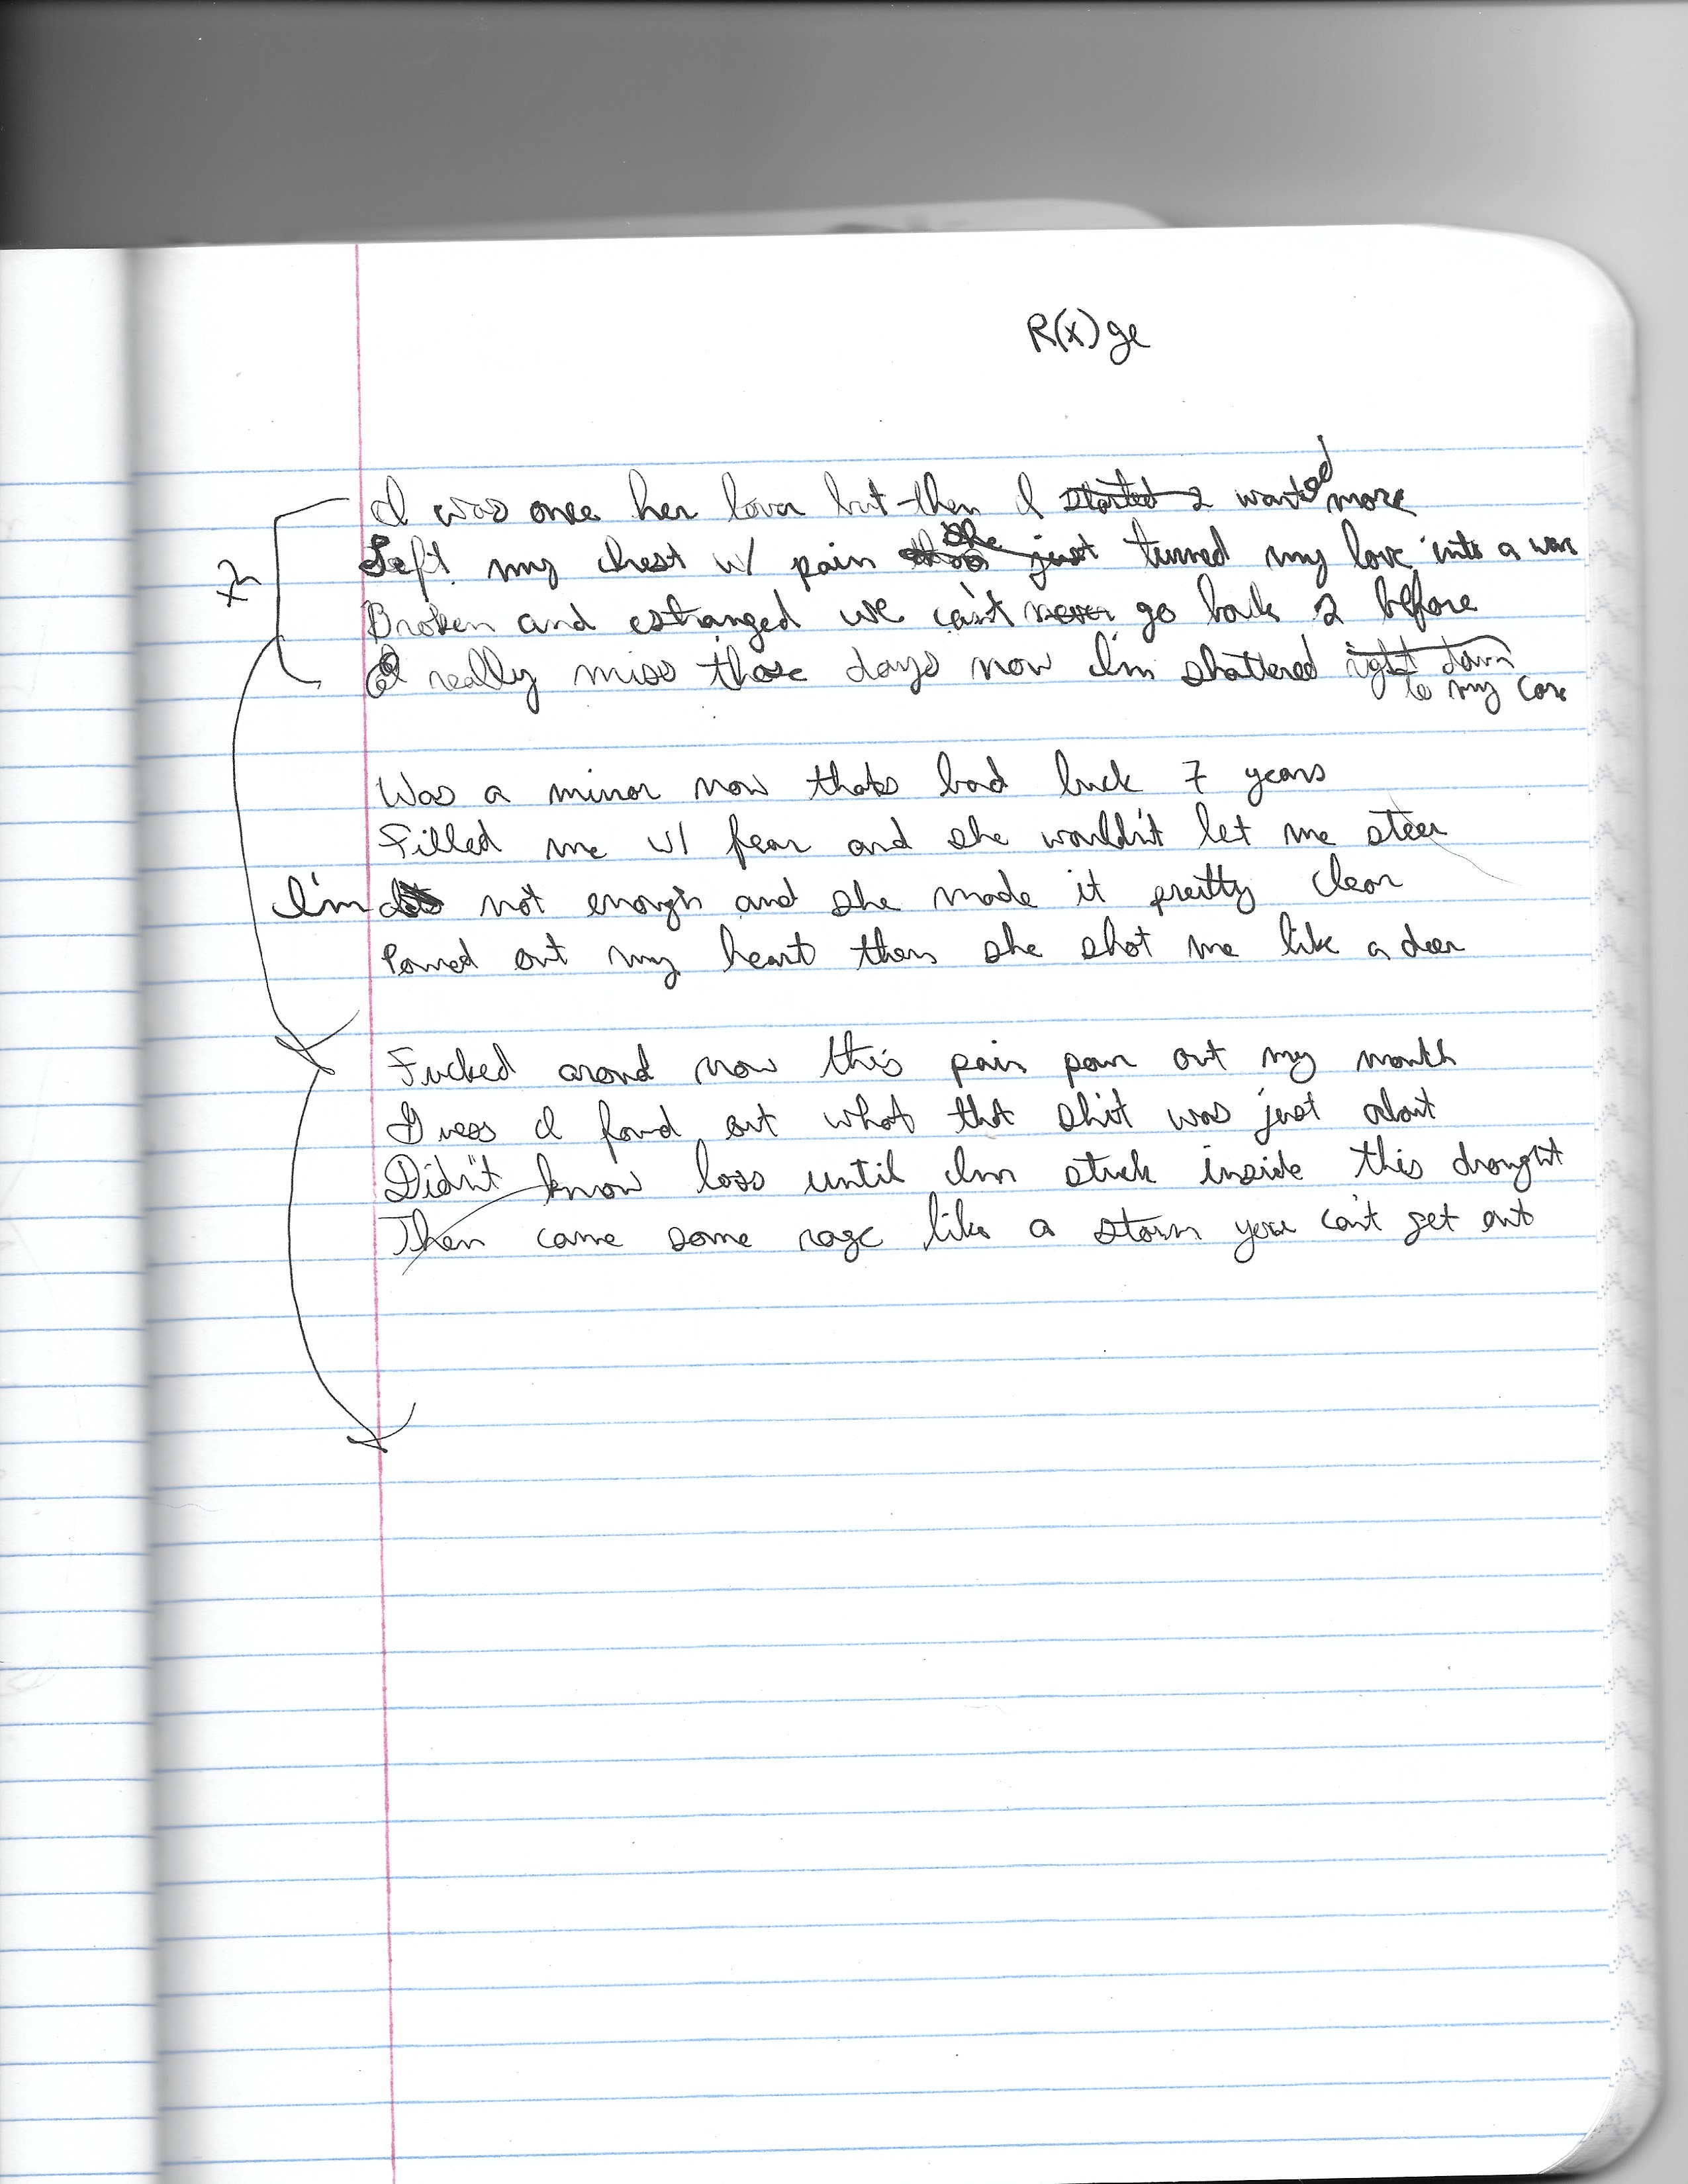 R(x)ge
I was once her lover but then I started 2 wanted more
x2
Left my chest w/ pain she just turned my love into a war
Broken and estranged we can't never go back 2 before
I really miss those days now I'm shattered right down
to my core
Was a mirror now thats bad luck 7 years
Filled me w/ fear and she wouldn't let me steer
I'm not enough and she made it pretty clear
Poured out my heart then she shot me like a deer
Fucked around now this pain pour out my mouth
Guess I found out what that shit was just about
Didn't know loss until I'm stuck inside this drought
Then came some rage like a storm you can't get out